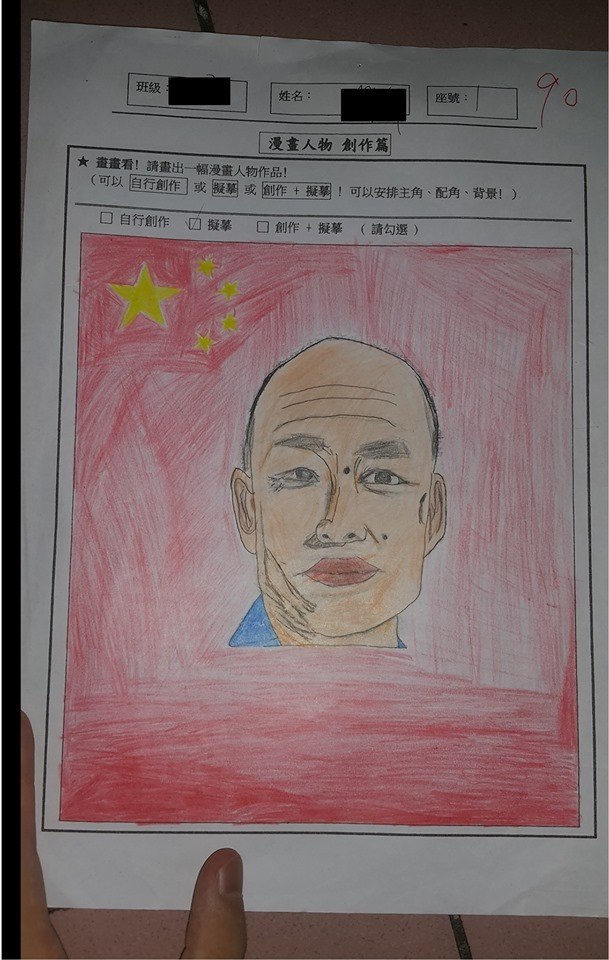 班級：
姓名：
座號：1
90
漫畫人物 創作篇
★ 畫畫看! 請畫出一幅漫畫人物作品!
(可以 自行創作 或 擬摹 或 創作 + 擬摹 ! 可以安排主角、配角、背景! )
□ 自行創作 ☑ 擬摹 □ 創作 + 擬摹 ( 請勾選 )